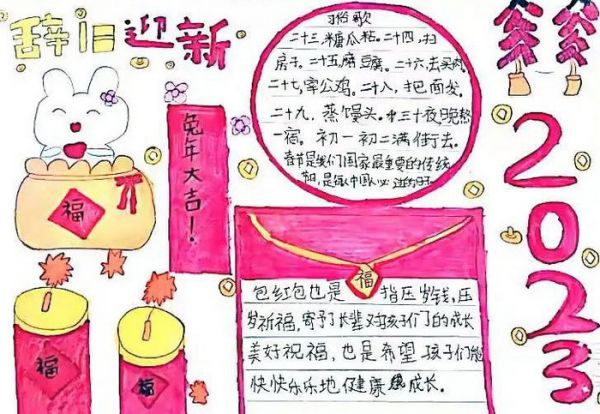 辞旧迎新
2023
福
兔年大吉!
歌
二十三,糖瓜粘。二十四,扫
房子。二十五,磨豆腐。二十六,去买肉。
二十七,宰公鸡。二十八,把面发。
二十九,蒸馒头。三十夜晚熬
一宿。初一初二满街去。
春节是我们国家最重要的传统
是中国人必过的
福
包红包也是 指压岁钱,压
岁祈福,寄予了长辈对孩子们的成长
美好祝福,也是希望孩子们能
快快乐乐地健康成长。
福
福